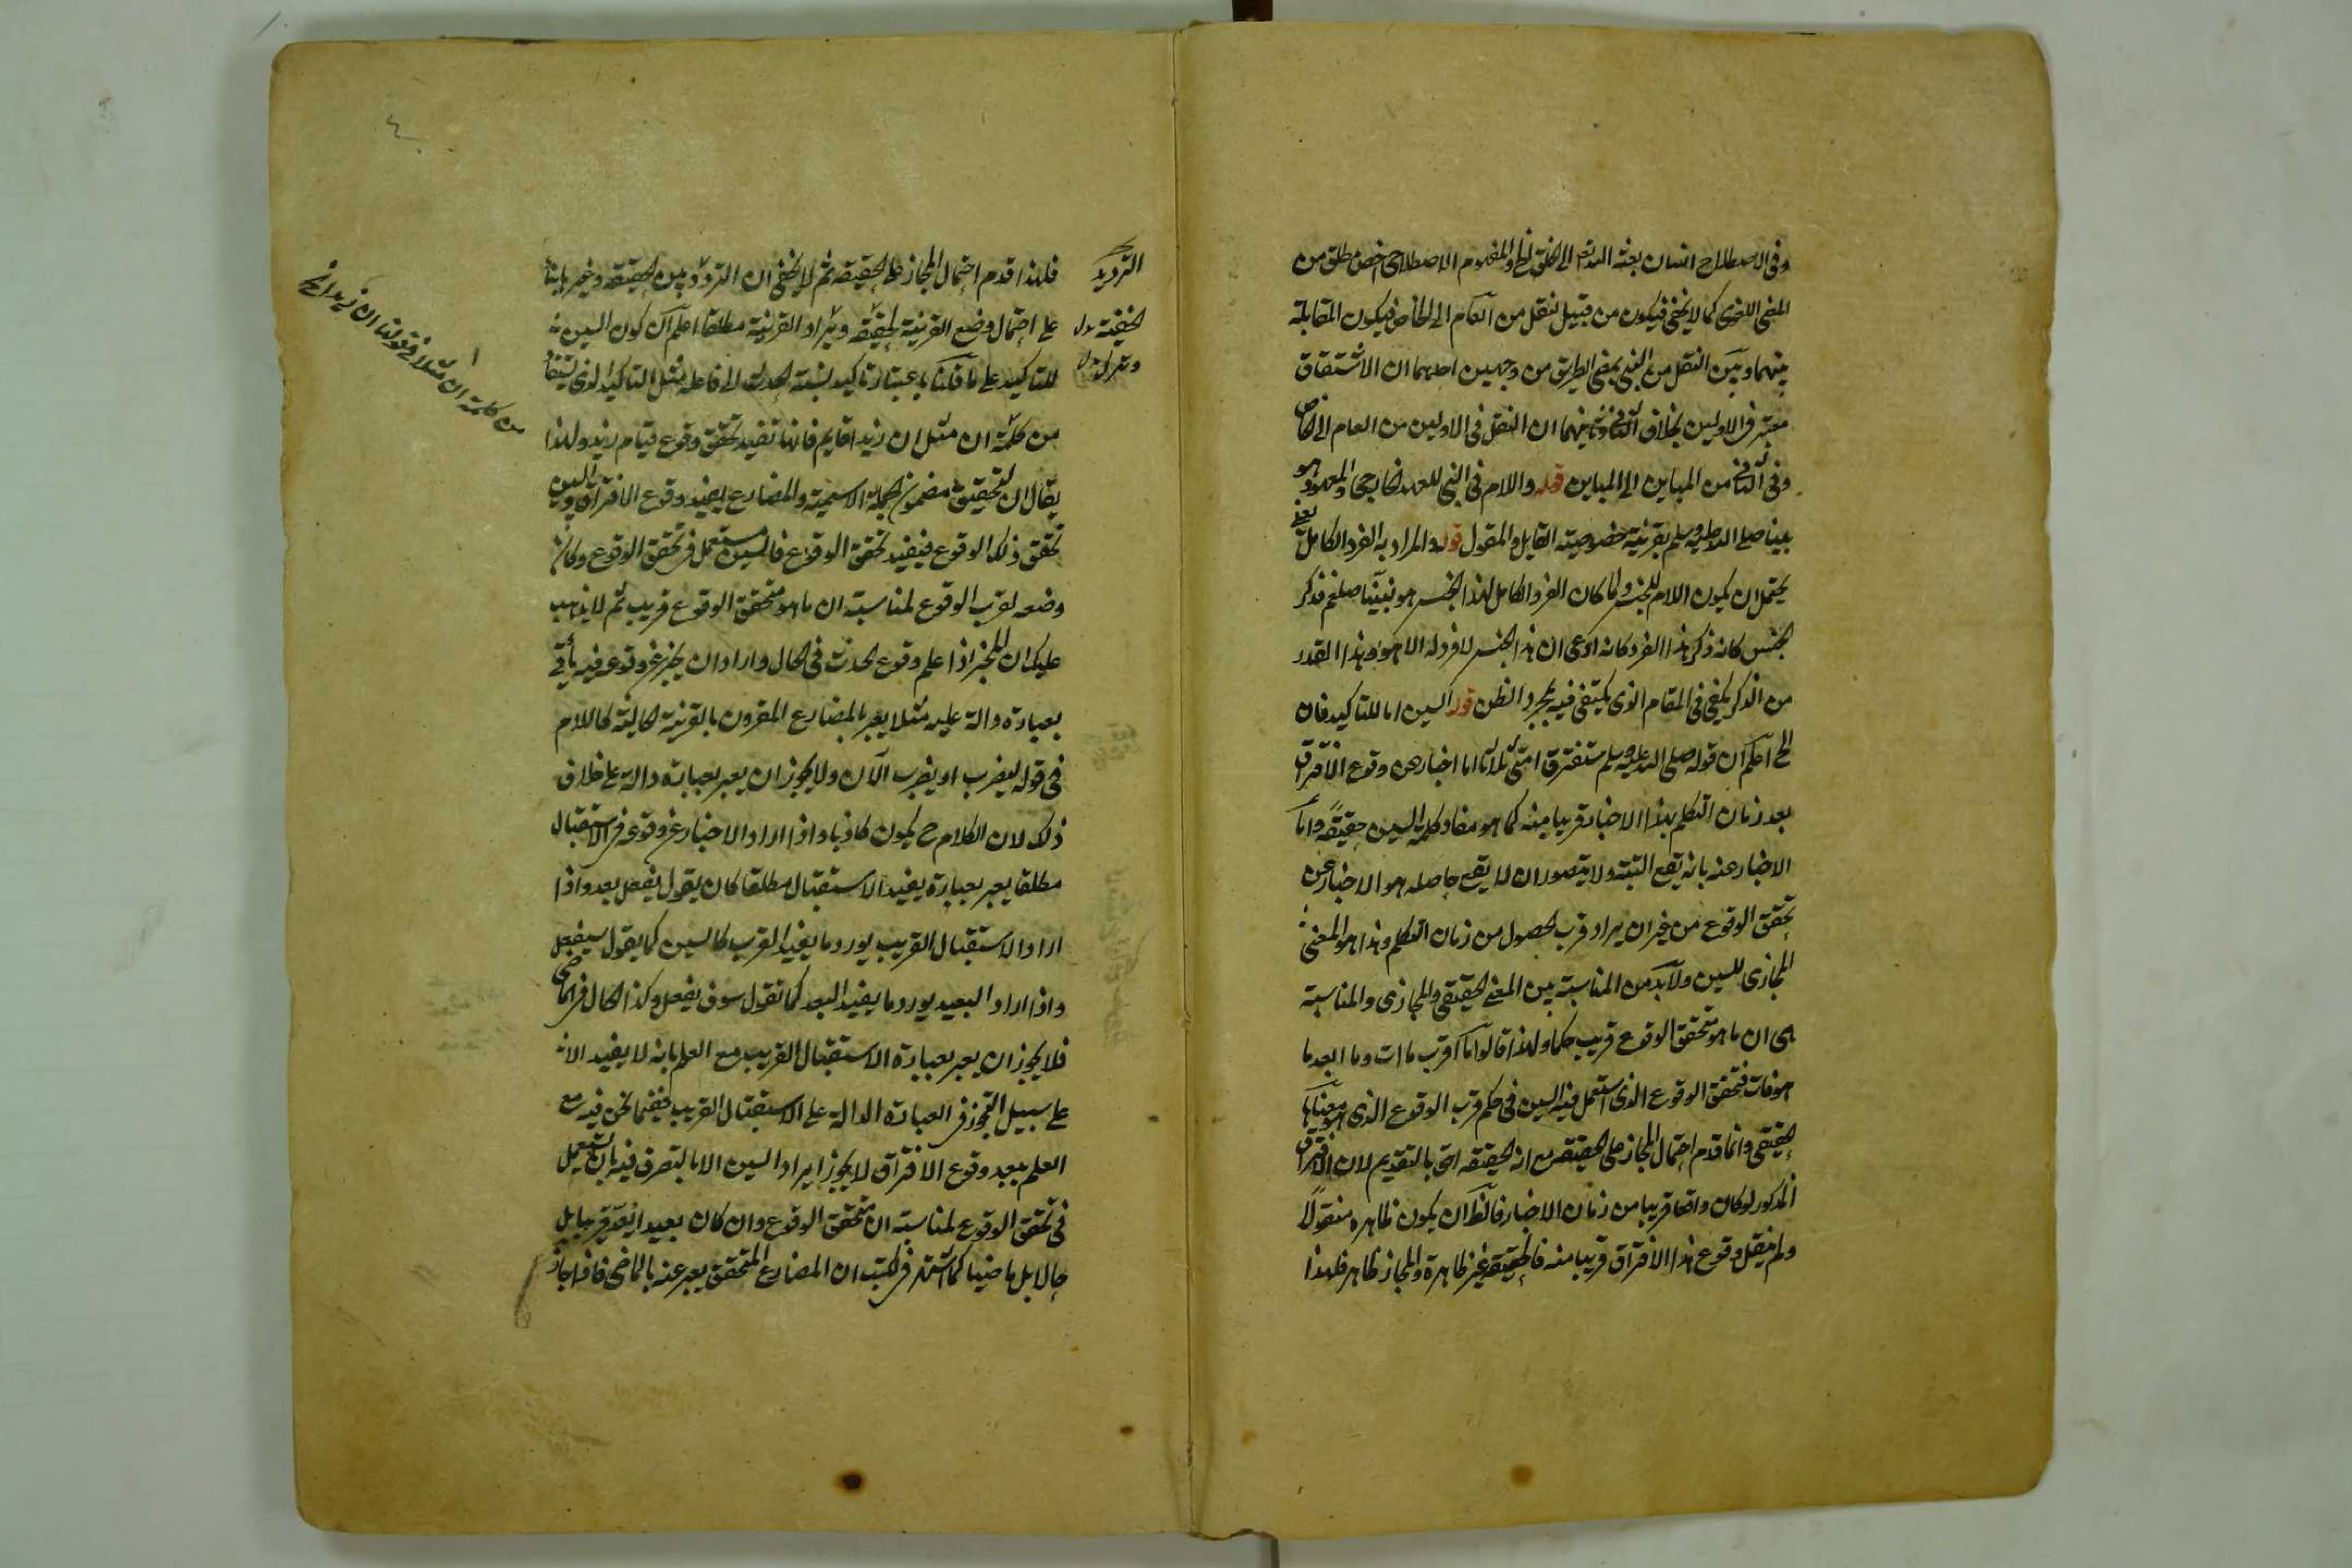 وفى الاصطلاح انسان بعثه الله تعالى الى الخلق والمفهوم الاصطلاحى اخص مطلق من
المعنى اللغوى كما لا يخفى فيكون من قبيل نقل من العام الى الخاص فيكون المقابلة
بينهما وبين النقل من النبى بمعنى الطريق من وجهين احدهما ان الاشتقاق
معتبر فى الاولين بخلاف الثالث وثانيهما ان النقل فى الاولين من العام الى الخاص
وفى الثالث من المباين الى المباين قوله واللام فى النبى للعهد الخارجى والمعهود هو
نبينا صلى الله عليه وسلم بقرينة خصوصية القايل والمقول قوله والمراد به الفرد الكامل يعنى
يحتمل ان يكون اللام للجنس ولما كان الفرد الكامل لهذا الجنس هو نبينا صلعم فذكر
الجنس كانه ذكر هذا الفرد كانه ادعى ان هذا الجنس لا فرد له الا هو وهذا القدر
من الذكر يكفى فى المقام الذى يكتفى فيه بمجرد الظن قوله السين اما للتاكيد فان
الخ اعلم ان قوله صلى الله عليه وسلم ستفترق امتى ثلاثا اما اخبار عن وقوع الافتراق
بعد زمان التكلم بهذا الاخبار قريبا منه كما هو مفاد كلمة السين حقيقة واما
الاخبار عنه بانه يقع البتة ولا يتصور ان لا يقع حاصله هو الاخبار عن
تحقق الوقوع من غير ان يراد قرب الحصول من زمان التكلم وهذا هو المعنى
المجازى للسين ولا بد من المناسبة بين المعنى الحقيقى والمجازى والمناسبة
هى ان ما هو متحقق الوقوع قريب حكما ولهذا قالوا ما اقرب ما ات وما ابعد ما
هو فات فتحقق الوقوع الذى استعمل فيه السين فى حكم قرب الوقوع الذى هو معناها
الحقيقى وانما قدم احتمال المجاز على الحقيقة مع ان الحقيقة احق بالتقديم لان الافتراق
المذكور لو كان واقعا قريبا من زمان الاخبار فالظ ان يكون ظاهره منقولا
ولم ينقل وقوع هذا الافتراق قريبا منه فالحقيقة غير ظاهرة والمجاز ظاهر فلهذا
فلهذا قدم احتمال المجاز على الحقيقة ثم لا يخفى ان الترديد بين الحقيقة وغيرها بناء
على احتمال وضع القرينة لحقيقة ويراد القرينة مطلقا اعلم ان كون السين
للتاكيد على ما قلنا باعتبار تاكيد نسبة الحدث الى فاعله مثل التاكيد الذى يستفاد
من كلمة ان مثل ان زيدا قايم فانها تفيد تحقق وقوع قيام زيد ولهذا
يقال ان لتحقيق مضمون الجملة الاسمية والمضارع يفيد وقوع الافتراق والسين
تحقق ذلك الوقوع فيفيد تحقق الوقوع فالسين مستعمل فى تحقق الوقوع وكان
وضعه لقرب الوقوع لمناسبة ان ما هو متحقق الوقوع قريب ثم لا يذهب
عليك ان المخبر اذا علم وقوع الحدث فى الحال واراد ان يخبر عن وقوعه فيه يأتى
بعبارة دالة عليه مثلا يعبر بالمضارع المقرون بالقرينة الحالية كاللام
فى قوله ليضرب او يضرب الآن ولا يجوز ان يعبر بعبارة دالة على خلاف
ذلك لان الكلام ح يكون كاذبا واذا اراد الاخبار عن وقوعه فى الاستقبال
مطلقا يعبر بعبارة يفيد الاستقبال مطلقا كان يقول يفعل بعد واذا
اراد الاستقبال القريب يورد ما يفيد القرب كالسين كما يقول سيفعل
واذا اراد البعيد يورد ما يفيد البعد كما تقول سوف يفعل وكذا الحال فى الماضى
فلا يجوز ان يعبر بعبارة الاستقبال القريب مع العلم بانه لا يفيد الا
على سبيل التجوز فى العبارة الدالة على الاستقبال القريب ففيما نحن فيه مع
العلم ببعد وقوع الافتراق لا يجوز ايراد السين الا بالتصرف فيه بان يستعمل
فى تحقق الوقوع لمناسبة ان متحقق الوقوع وان كان بعيدا يعد قريبا بل
حالا بل ماضيا كما اشتهر فى الكتب ان المضارع المتحقق يعبر عنه بالماضى فاذا جاز
الترديد
الحقيقة بدل
من كلمة ان مثلا فى قولنا ان زيدا الخ